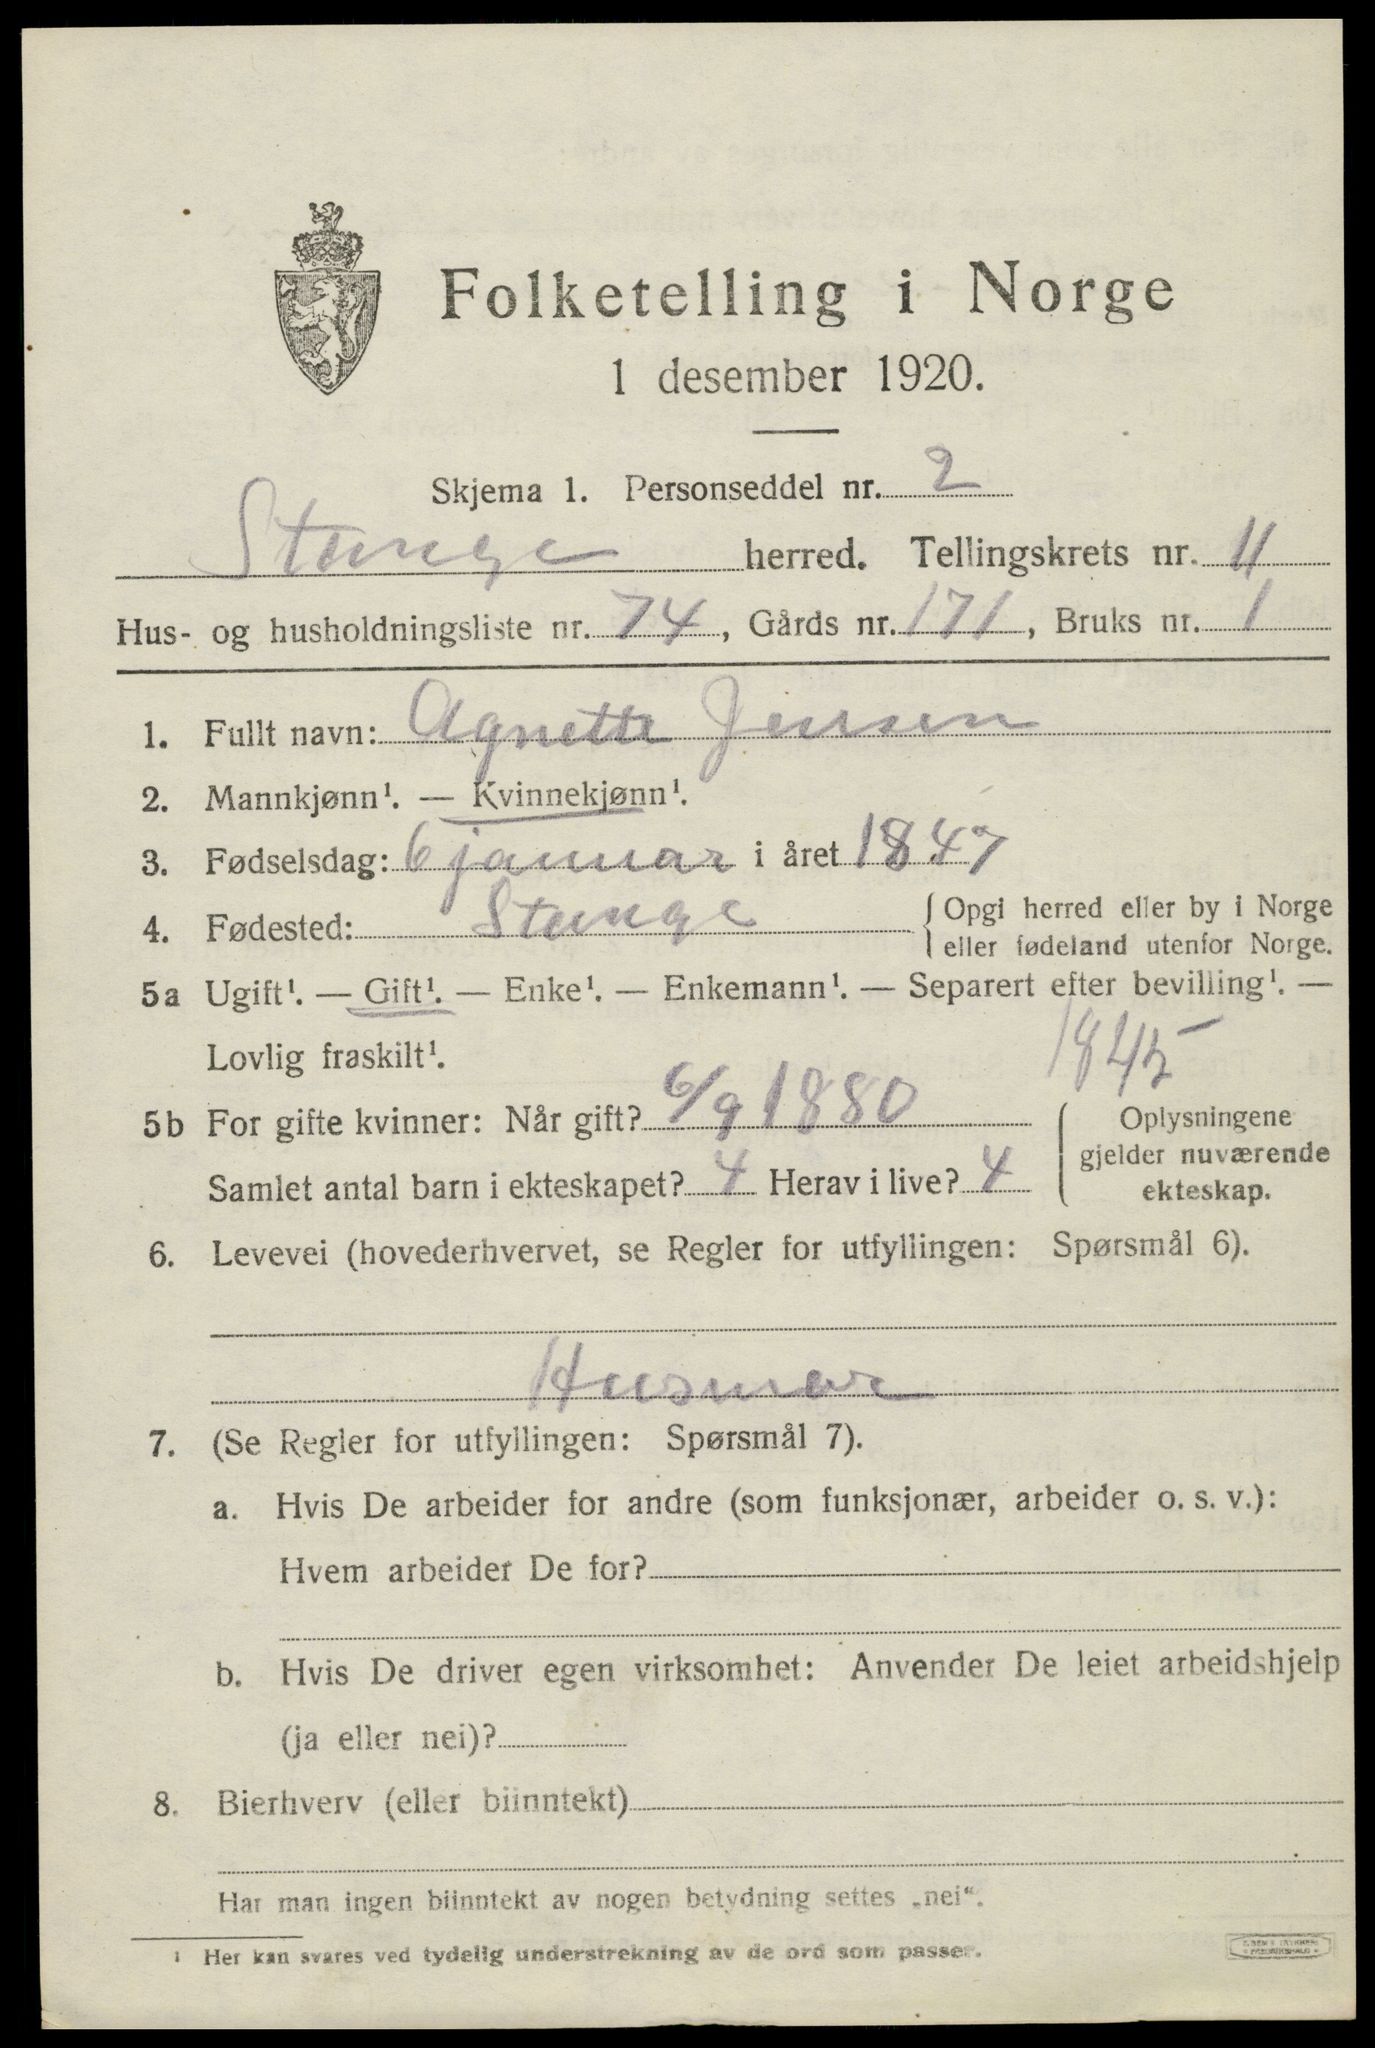 Folketelling i Norge
1 desember 1920.
Skjema 1. Personseddel nr. 2
Stange herred. Tellingskrets nr. 11
Hus- og husholdningsliste nr. 74, Gårds nr. 171, Bruks nr. 1
1. Fullt navn: Agnette Jensen
2. Mannkjønn¹. — Kvinnekjønn¹.
3. Fødselsdag: 6 januar i året 1847
4. Fødested: Stange { Opgi herred eller by i Norge
eller fødeland utenfor Norge.
5a Ugift¹. — Gift¹. — Enke¹. — Enkemann¹. — Separert efter bevilling¹. —
Lovlig fraskilt¹.
1845
5b For gifte kvinner: Når gift? 6/9 1880
Samlet antal barn i ekteskapet? 4 Herav i live? 4
Oplysningene
gjelder nuværende
ekteskap.
6. Levevei (hovederhvervet, se Regler for utfyllingen: Spørsmål 6).
Husmor
7. (Se Regler for utfyllingen: Spørsmål 7).
a. Hvis De arbeider for andre (som funksjonær, arbeider o. s. v.):
Hvem arbeider De for?
b. Hvis De driver egen virksomhet: Anvender De leiet arbeidshjelp
(ja eller nei)?
8. Bierhverv (eller biinntekt)
Har man ingen biinntekt av nogen betydning settes „nei“.
¹ Her kan svares ved tydelig understrekning av de ord som passer.